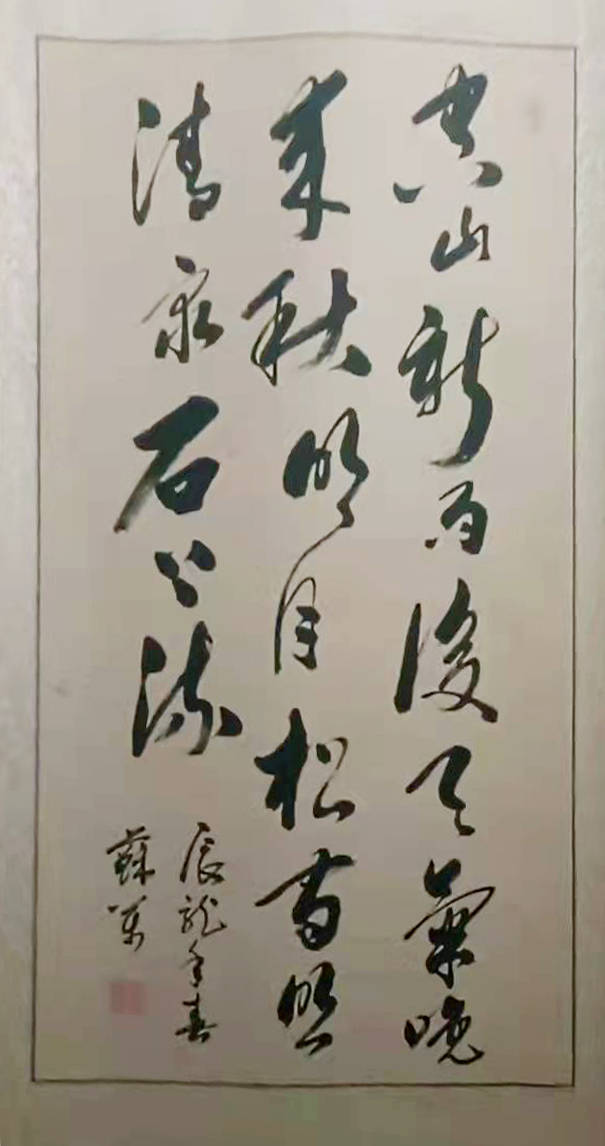 空山新雨後天氣晚
来秋明月松間照
清泉石上流
辰龍年春
蘇